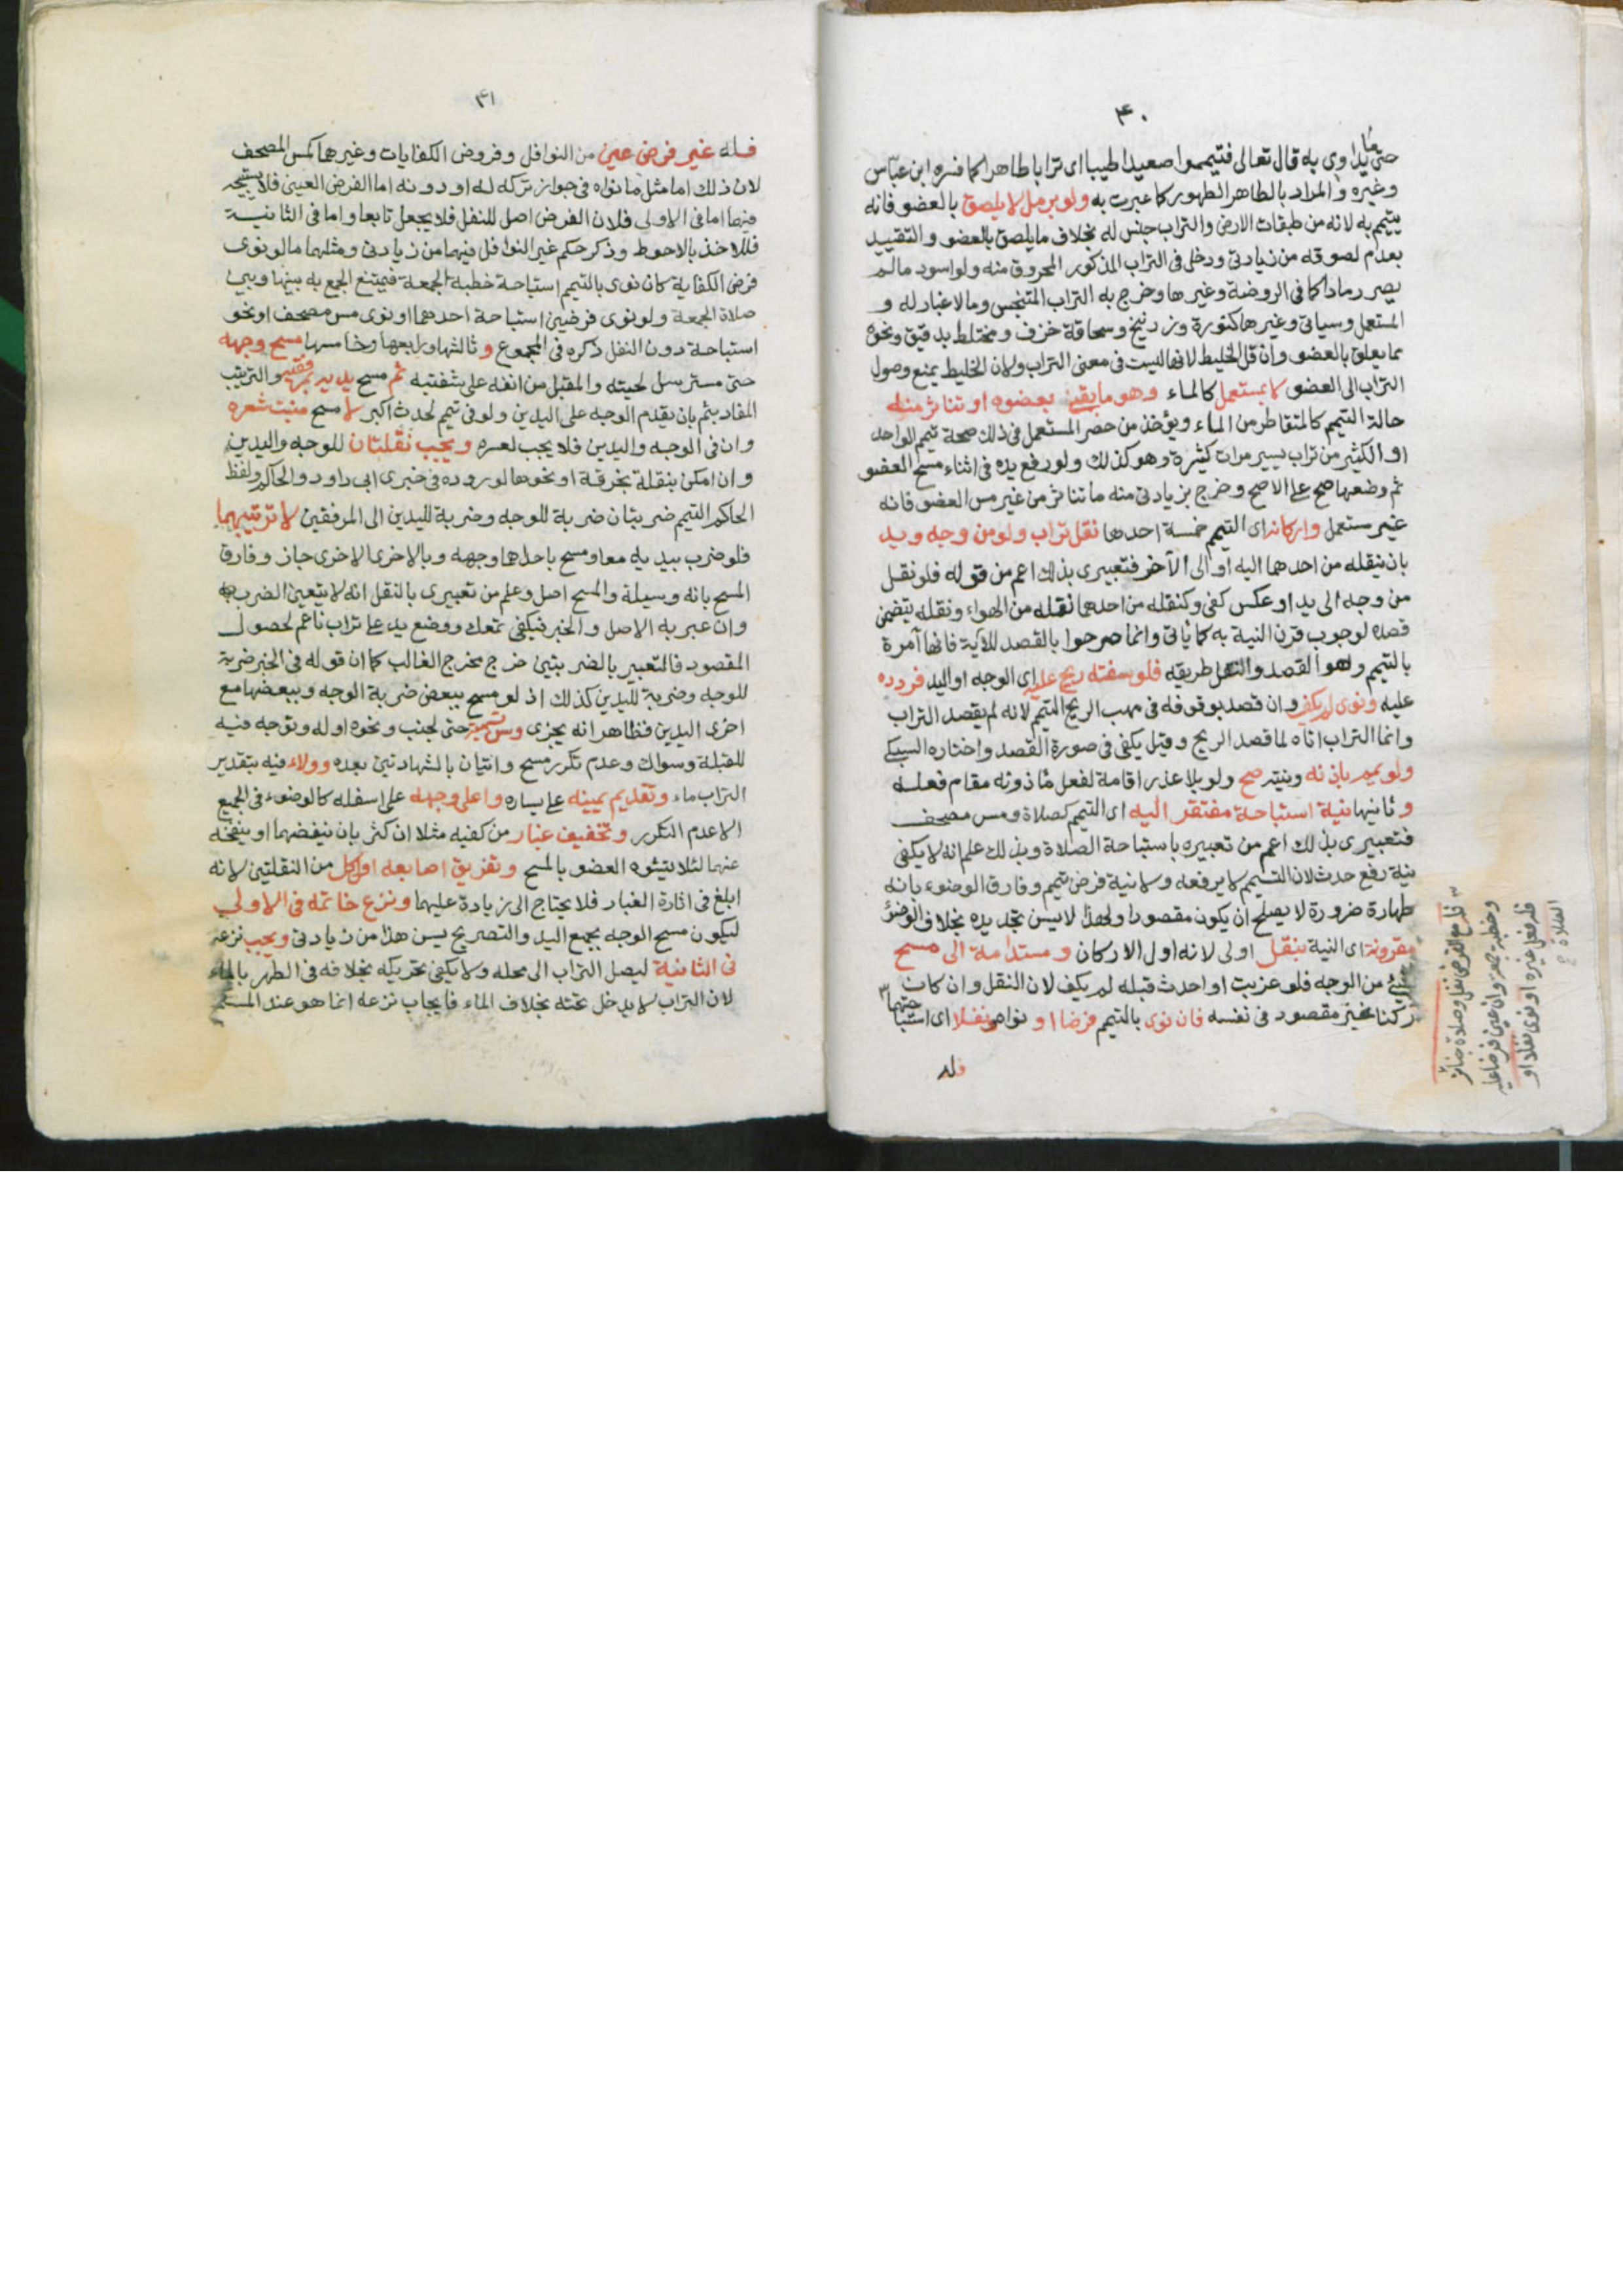 ٤٠
حتى ما يداوى به قال تعالى فتيمموا صعيدا طيبا اى ترابا طاهرا كما فسره ابن عباس
وغيره والمراد بالطاهر الطهور كما عبرت به ولو برمل لا يلصق بالعضو فانه
يتيمم به لانه من طبقات الارض والتراب جنس له بخلاف ما يلصق بالعضو والتقييد
بعدم لصوقه من زيادتى ودخل فى التراب المذكور المحروق منه ولو اسود ما لم
يصر رمادا كما فى الروضة وغيرها وخرج به التراب المتنجس وما لا غبار له و
المستعمل وسياتى وغيرها كنورة وزرنيخ وسحاقة خزف ومختلط بدقيق ونحوه
مما يعلق بالعضو وان قل الخليط لانها ليست فى معنى التراب ولان الخليط يمنع وصول
التراب الى العضو لا بمستعمل كالماء وهو ما بقى بعضوه او تناثر منه
حالة التيمم كالمتقاطر من الماء ويؤخذ من حصر المستعمل فى ذلك صحة تيمم الواحد
او الكثير من تراب يسير مرات كثيرة وهو كذلك ولو رفع يده فى اثناء مسح العضو
ثم وضعها صح على الاصح وخرج بزيادتى منه ما تناثر من غير مس العضو فانه
غير مستعمل واركانه اى التيمم خمسة احدها نقل تراب ولو من وجه ويد
بان ينقله من احدهما اليه او الى الآخر فتعبيرى بذلك اعم من قوله فلو نقل
من وجه الى يد او عكس كفى وكنقله من احدهما نقله من الهواء ونقله يتضمن
قصده لوجوب قرن النية به كما ياتى وانما صرحوا بالقصد للآية فانها آمرة
بالتيمم وهو القصد والنقل طريقه فلو سفته ريح عليه اى الوجه او اليد فردده
عليه ونوى لم يكف وان قصد بوقوفه فى مهب الريح التيمم لانه لم يقصد التراب
وانما التراب اتاه لما قصد الريح وقيل يكفى فى صورة القصد واختاره السبكى
ولو يمم باذنه ونيته صح ولو بلا عذر اقامة لفعل ماذونه مقام فعله
وثانيها نية استباحة مفتقر اليه اى التيمم كصلاة ومس مصحف
فتعبيرى بذلك اعم من تعبيره باستباحة الصلاة وبذلك علم انه لا يكفى
نية رفع حدث لان التيمم لا يرفعه ولا نية فرض تيمم وفارق الوضوء بانه
طهارة ضرورة لا يصلح ان يكون مقصودا ولهذا لا يسن تجديده بخلاف الوضوء
مقرونة اى النية بنقل اولى لانه اول الاركان ومستدامة الى مسح
شئ من الوجه فلو عزبت او احدث قبله لم يكف لان النقل وان كان
ركنا غير مقصود فى نفسه فان نوى بالتيمم فرضا او نواه ونفلا اى استباحتهما
فله
فله مع الفرض نفل وصلاة جنائز
وخطبة جمعة وان عين فرضا عليه
فله فعل غيره او نوى نفلا او
الصلاة
٤١
فله غير فرض عين من النوافل وفروض الكفايات وغيرهما كمس المصحف
لان ذلك اما مثل ما نواه فى جواز تركه له او دونه اما الفرض العينى فلا يستبيحه
فيهما اما فى الاولى فلان الفرض اصل للنفل فلا يجعل تابعا واما فى الثانية
فللاخذ بالاحوط وذكر حكم غير النوافل فيهما من زيادتى ومثلهما ما لو نوى
فرض الكفاية كان نوى بالتيمم استباحة خطبة الجمعة فيمتنع الجمع به بينها وبين
صلاة الجمعة ولو نوى فرضين استباحة احدهما او نوى مس مصحف او نحو
استباحة دون النفل ذكره فى المجموع وثالثها ورابعها وخامسها مسح وجهه
حتى مسترسل لحيته والمقبل من انفه على شفتيه ثم مسح يديه بمرفقيه والترتيب
المفاد بثم بان يقدم الوجه على اليدين ولو فى تيمم لحدث اكبر لا مسح منبت شعره
وان فى الوجه واليدين فلا يجب لعسره ويجب نقلتان للوجه واليدين
وان امكن بنقلة بخرقة او نحوها لوروده فى خبرى ابى داود والحاكم ولفظ
الحاكم التيمم ضربتان ضربة للوجه وضربة لليدين الى المرفقين لا ترتيبهما
فلو ضرب بيديه معا ومسح باحداهما وجهه وبالاخرى الاخرى جاز وفارق
المسح بانه وسيلة والمسح اصل وعلم من تعبيرى بالنقل انه لا يتعين الضرب
وان عبر به الاصل والخبر فيكفى تمعك ووضع يد على تراب ناعم لحصول
المقصود فالتعبير بالضربتين خرج مخرج الغالب كما ان قوله فى الخبر ضربة
للوجه وضربة لليدين كذلك اذ لو مسح ببعض ضربة الوجه وببعضها مع
اخرى اليدين فظاهر انه يجزى وسن تسمية حتى لجنب ونحوه اوله وتوجه فيه
للقبلة وسواك وعدم تكرر مسح واتيان بالشهادتين بعده وولاء فيه بتقدير
التراب ماء وتقديم يمينه على يساره واعلى وجهه على اسفله كالوضوء فى الجميع
الا عدم التكرر وتخفيف غبار من كفيه مثلا ان كثر بان ينفضهما او ينفخه
عنهما لئلا يشوه العضو بالمسح وتفريق اصابعه اول كل من النقلتين لانه
ابلغ فى اثارة الغبار فلا يحتاج الى زيادة عليهما ونزع خاتمه فى الاولى
ليكون مسح الوجه بجميع اليد والتصريح بسن هذا من زيادتى ويجب نزعه
فى الثانية ليصل التراب الى محله ولا يكفى تحريكه بخلافه فى الطهر بالماء
لان التراب لا يدخل تحته بخلاف الماء فايجاب نزعه انما هو عند المسح